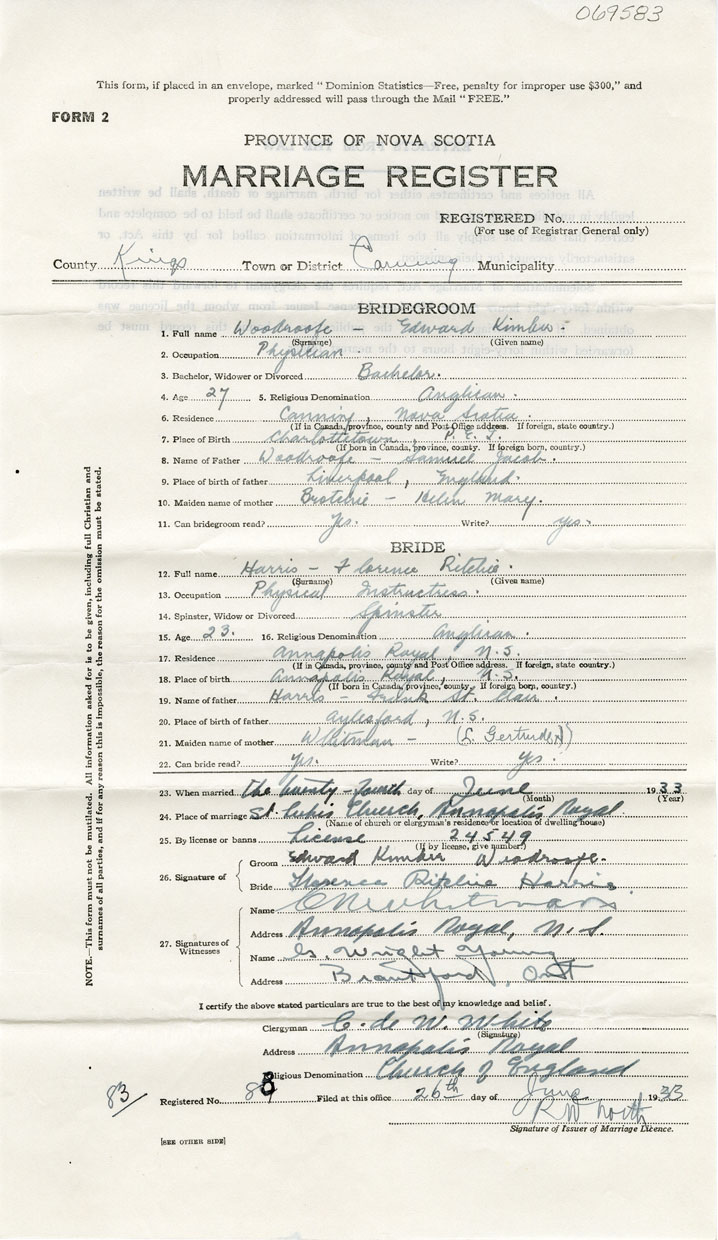 069583
This form, if placed in an envelope, marked "Dominion Statistics—Free, penalty for improper use $300," and
properly addressed will pass through the Mail "FREE."
FORM 2
PROVINCE OF NOVA SCOTIA
MARRIAGE REGISTER
REGISTERED No.
(For use of Registrar General only)
County Kings Town or District Canning Municipality
BRIDEGROOM
1. Full name Woodroofe - Edward Kimber.
(Surname) (Given name)
2. Occupation Physician.
3. Bachelor, Widower or Divorced Bachelor.
4. Age 27 5. Religious Denomination Anglican.
6. Residence Canning, Nova Scotia.
(If in Canada, province, county and Post Office address. If foreign, state country.)
7. Place of Birth Charlottetown, P.E.I.
(If born in Canada, province, county. If foreign born, country.)
8. Name of Father Woodroofe - Samuel Jacob.
9. Place of birth of father Liverpool, England.
10. Maiden name of mother - Helen Mary.
11. Can bridegroom read? Yes. Write? yes.
BRIDE
12. Full name Harris - Florence Ritchie.
(Surname) (Given name)
13. Occupation Physical Instructress.
14. Spinster, Widow or Divorced Spinster
15. Age 23. 16. Religious Denomination Anglican.
17. Residence Annapolis Royal, N.S.
(If in Canada, province, county and Post Office address. If foreign, state country.)
18. Place of birth Annapolis Royal, N.S.
(If born in Canada, province, county. If foreign born, country.)
19. Name of father Harris - St. Clair.
20. Place of birth of father Aylesford, N.S.
21. Maiden name of mother Whitman - (L. Gertrude)
22. Can bride read? Yes. Write? Yes.
23. When married the twenty-fourth day of June 1933
(Month) (Year)
24. Place of marriage St. Luke's Church, Annapolis Royal.
(Name of church or clergyman's residence or location of dwelling house)
25. By license or banns License 24549
(If by license, give number)
26. Signature of
Groom Edward Kimber Woodroofe.
Bride Florence Ritchie Harris
27. Signatures of Witnesses
Name Whitman
Address Annapolis Royal, N.S.
Name G. Wright Young
Address Brantford, Ont
I certify the above stated particulars are true to the best of my knowledge and belief.
Clergyman C. de W. White
(Signature)
Address Annapolis Royal
Religious Denomination Church of England
83/ Registered No. 88 Filed at this office 26th day of June 1933
R W North
Signature of Issuer of Marriage Licence.
[SEE OTHER SIDE]
NOTE.—This form must not be mutilated. All information asked for is to be given, including full Christian and
surnames of all parties, and if for any reason this is impossible, the reason for the omission must be stated.